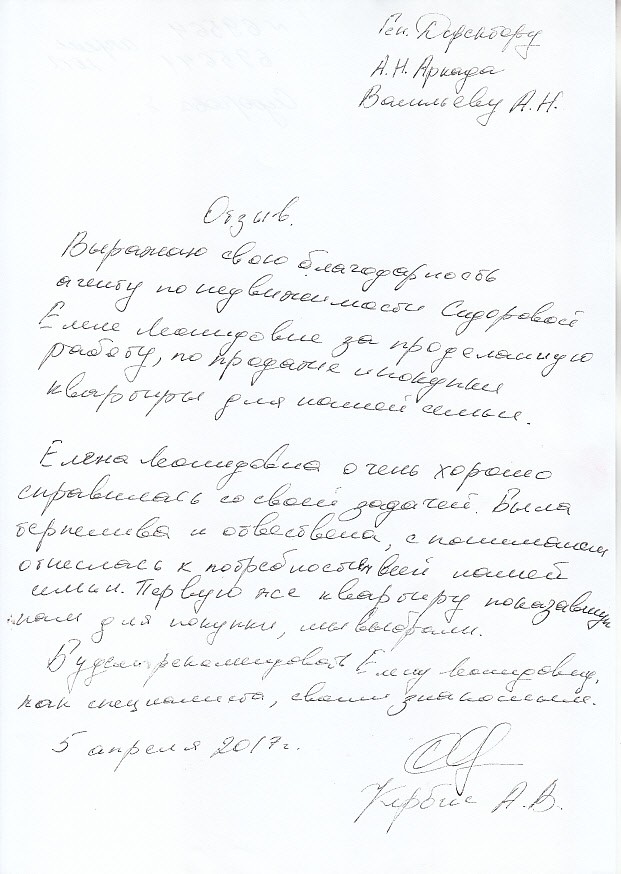 Ген. Директору
А.Н. Аркада
Васильеву А.Н.
Отзыв.
Выражаю свою благодарность
агенту по недвижимости Сидоровой
Елене Леонидовне за проделанную
работу, по продаже и покупки
квартиры для нашей семьи.
Елена Леонидовна очень хорошо
справилась со своей задачей. Была
терпелива и отвествена, с пониманием
отнеслась к потребностям всей нашей
семьи. Первую же квартиру показавшую
нам для покупки, мы выбрали.
Будем рекомендовать Елену Леонидовну,
как специалиста, своим знакомым.
5 апреля 2017г.
А.В.